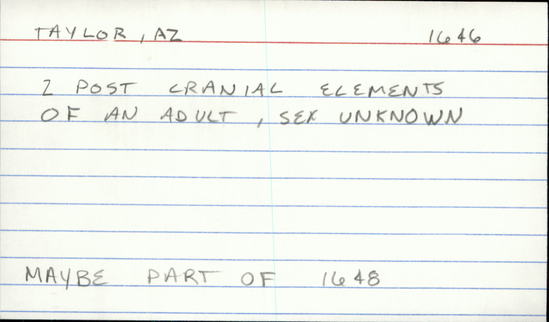 TAYLOR, AZ 1646
2 POST CRANIAL ELEMENTS
OF AN ADULT, SEX UNKNOWN
MAYBE PART OF 1648